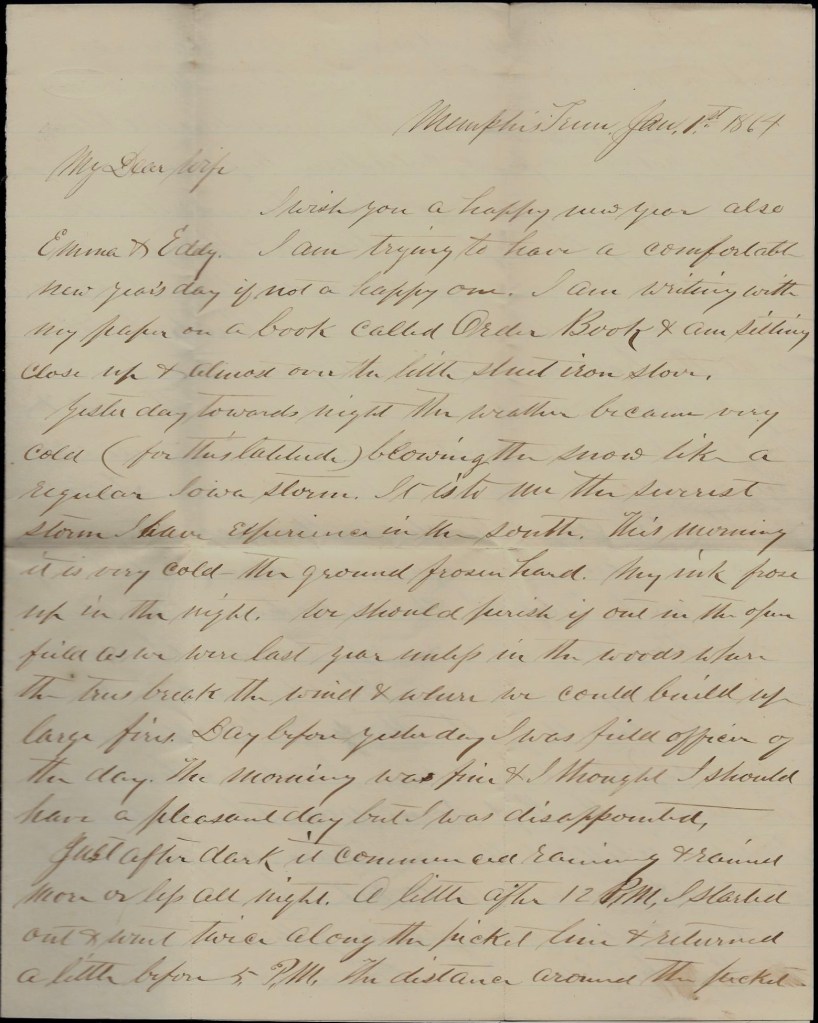 Memphis Tenn. Jan. 1.st 1864
My Dear Wife
I wish you a happy new year also
Emma & Eddy. I am trying to have a comfortable
new year's day if not a happy one. I am writing with
my paper on a book called Order Book & am sitting
close up & almost over the little sheet iron stove.
Yesterday towards night the weather became very
cold (for this latitude) blowing the snow like a
regular Iowa storm. It is to me the severest
storm I have experience in the south. This morning
it is very cold - the ground frosen hard. My ink frose
up in the night. We should perish if out in the open
field as we were last year unless in the woods where
the trees break the wind & where we could build up
large fires. Day before yesterday I was field officer of
the day. The morning was fine & I thought I should
have a pleasant day but I was disappointed,
Just after dark it commenced raining & rained
more or less all night. A little after 12 P.M. I started
out & went twice along the picket line & returned
a little before 5 P.M. The distance around the picket